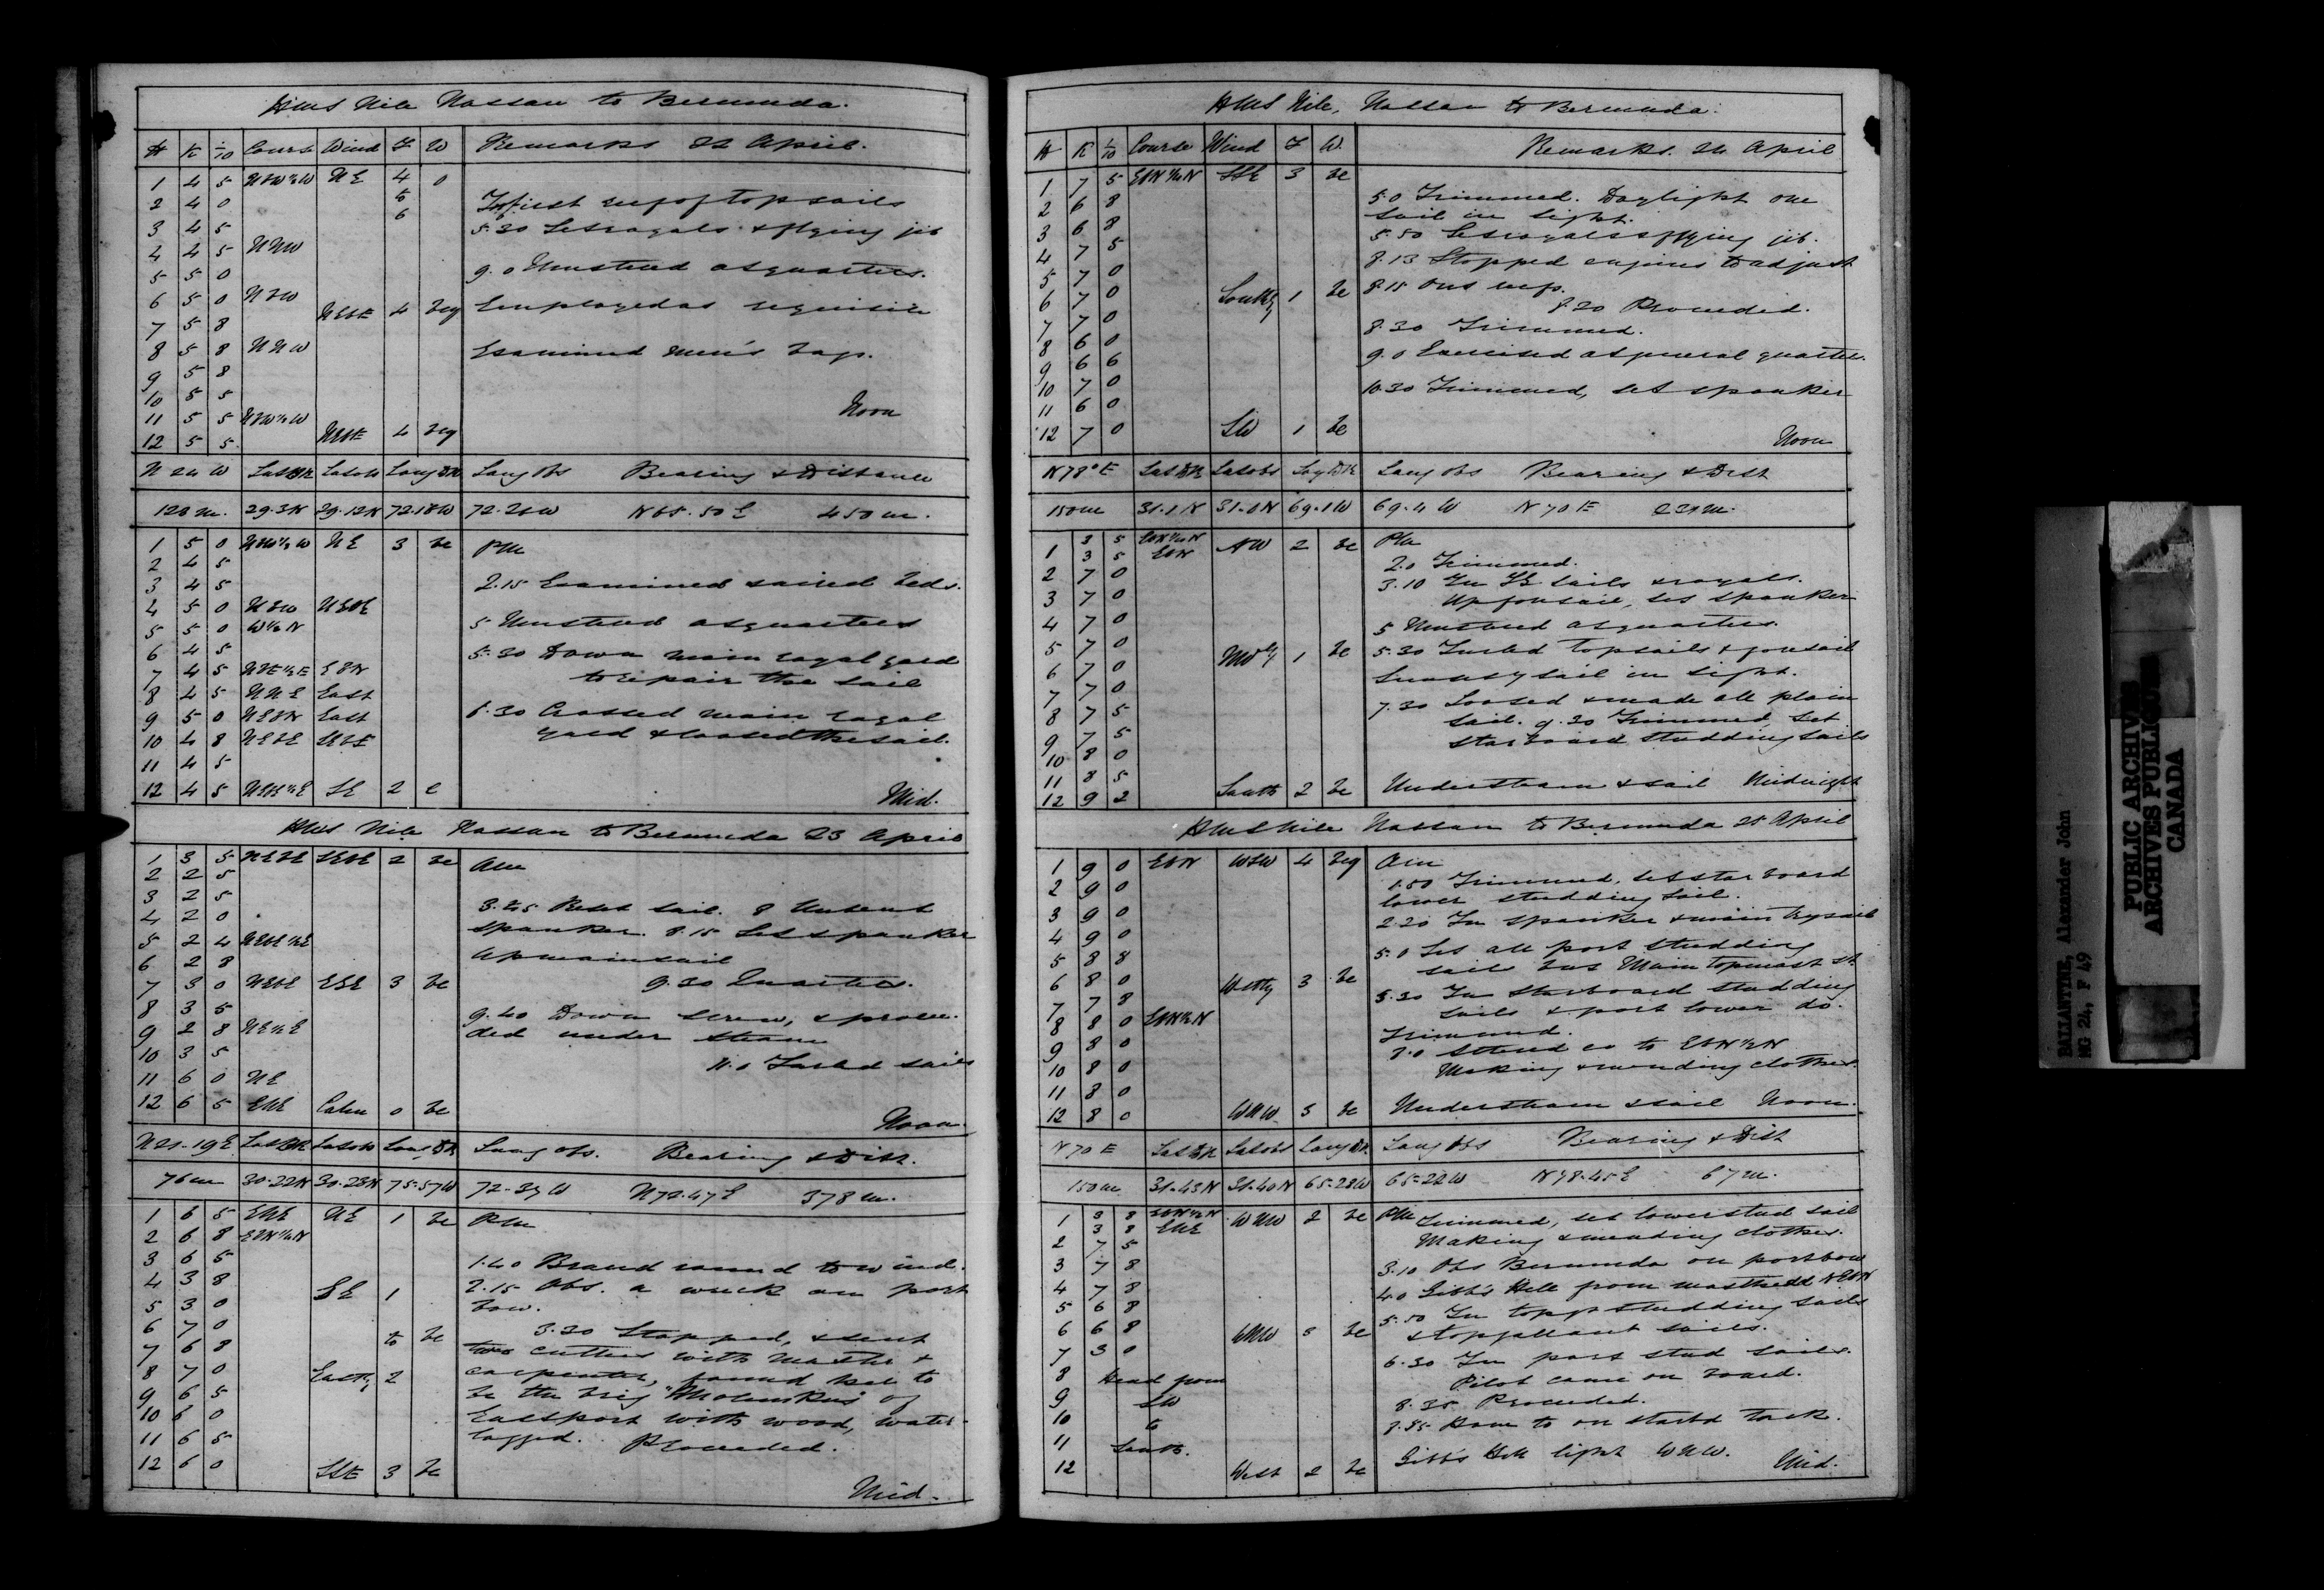 HMS Nile Nassau to Bermuda.
H K 1/10 Course Wind F W Remarks 22 April.
1 4 5 NbW½W NE 4 o
2 4 0 to first reef of topsails
3 4 5 6 5.30 Set royals & flying jib
4 4 5 NNW
5 5 0 9.0 Mustered at quarters.
6 5 0 NbW Employed as requisite
7 5 8 NEbE 4 bcq
8 5 8 NNW Examined men's bags.
9 5 8
10 5 5
11 5 5 NbW½W Noon
12 5 5 NEbE 4 bcq
N 24 W Lat DR Lat obs Long DR Long Obs Bearing & Distance
128 m. 29.3N 29.12N 72.18W 72.26W N65.50E 450 m.
1 5 0 NbW½W NE 3 bc PM
2 4 5
3 4 5 2.15 Examined & aired beds.
4 5 0 NbW NEbE
5 5 0 W½N 5 Mustered at quarters
6 4 5 5.30 Down main royal yard
7 4 5 NbE½E EbN to repair the sail
8 4 5 NNE East
9 5 0 NEbN East 6.30 Crossed main royal
10 4 8 NEbE SEbE yard & loosed the sail.
11 4 5
12 4 5 SE 2 c Mid.
HMS Nile Nassau to Bermuda 23 April
1 3 5 NEbE SEbE 2 bc AM
2 2 5
3 2 5 3.45 Reset sail. 8 Unbent
4 2 0 spanker. 8.15 Set spanker
5 2 4 NEbE½E Up mainsail
6 2 8
7 3 0 NEbE ESE 3 bc 9.30 Quarters.
8 3 5
9 2 8 NE½E 9.40 Down screw, & procee-
10 3 5 ded under steam
11 6 0 NE 11.0 Furled sails
12 6 5 ENE Calm 0 bc Noon.
Lat DR Lat obs Long DR Long obs. Bearing & Dist.
76 m 30.22N 30.23N 75.57W 72.37W N72.47E 378 m.
1 6 5 ENE NE 1 bc PM
2 6 8 EbN½N
3 6 5 1.40 Braced round to wind.
4 3 8 SE 1 2.15 Obs. a wreck on port
5 3 0 bow.
6 7 0 to bc 3.30 Stopped, & sent
7 6 8 two cutters with Master &
8 7 0 Eastly 2 carpenter, found her to
9 6 5 be the brig of
10 6 0 Eastport with wood, water-
11 6 5 logged. Proceeded.
12 6 0 SSE 3 bc Mid.
HMS Nile, Nassau to Bermuda.
H K 1/10 Course Wind F W. Remarks. 24 April
1 7 5 EbN½N SSE 3 bc 5.0 Trimmed. Daylight one
2 6 8 sail in sight.
3 6 8 5.50 Set royals & flying jib.
4 7 5 8.13 Stopped engines to adjust
5 7 0 8.15 Out reefs.
6 7 0 Southly 1 bc 8.20 Proceeded.
7 7 0 8.30 Trimmed.
8 6 0 9.0 Exercised at general quarters.
9 6 6
10 7 0 10.30 Trimmed, set spanker
11 6 0
12 7 0 SW 1 bc Noon
N78°E Lat DR Lat obs Long DR Long obs Bearing & Dist
150 m 31.1N 31.0N 69.1W 69.4W N70E 231 m.
1 3 5 EbN½N NW 2 bc PM
3 5 EbN 2.0 Trimmed.
2 7 0 3.10 In SE sails & royals.
3 7 0 Up foresail, set spanker
4 7 0 5 Mustered at quarters.
5 7 0 NWly 1 bc 5.30 Furled topsails & foresail
6 7 0 Sunset sail in sight.
7 7 0 7.30 Loosed & made all plain
8 7 5 sail. 9.30 Trimmed, set
9 7 5 starboard studding sails
10 8 0
11 8 5
12 9 2 South 2 bc Under steam & sail Midnight
HMS Nile Nassau to Bermuda 25 April
1 9 0 EbN WSW 4 bcq AM
2 9 0 1.50 Trimmed, set starboard
3 9 0 lower studding sail.
4 9 0 2.20 In spanker & main trysail
5 8 8 5.0 Set all port studding
6 8 0 Westly 3 bc sails but Main topmast st.
7 7 8 5.30 In starboard studding
8 8 0 EbN½N sails & port lower do.
9 8 0 Trimmed.
10 8 0 8.0 Altered co to EbN½N
11 8 0 Making & mending clothes.
12 8 0 WNW 3 bc Under steam & sail Noon.
N70E Lat DR Lat obs Long DR Long Obs Bearing & Dist
150 m 31.43N 31.40N 65.28W 65.22W N78.45E 67 m.
1 3 8 EbN½N WNW 2 bc PM Trimmed, set lower stud sail
3 8 ENE Making & mending clothes.
2 7 5
3 7 8 3.10 Obs Bermuda on port bow
4 7 8 4.0 Gibb's Hill from masthead NEbN
5 6 8 5.50 In topgt studding sails
6 6 8 WNW 3 bc & topgallant sails.
7 3 0 6.30 In port stud sails.
8 Head from Pilot came on board.
9 SW 8.35 Proceeded.
10 to 8.55 Hove to on starbd tack.
11 South.
12 West 2 bc Gibb's Hill light WNW. Mid.
BALLANTYNE, Alexander John
MG 24, F 49
PUBLIC ARCHIVES
ARCHIVES PUBLIQUES
CANADA